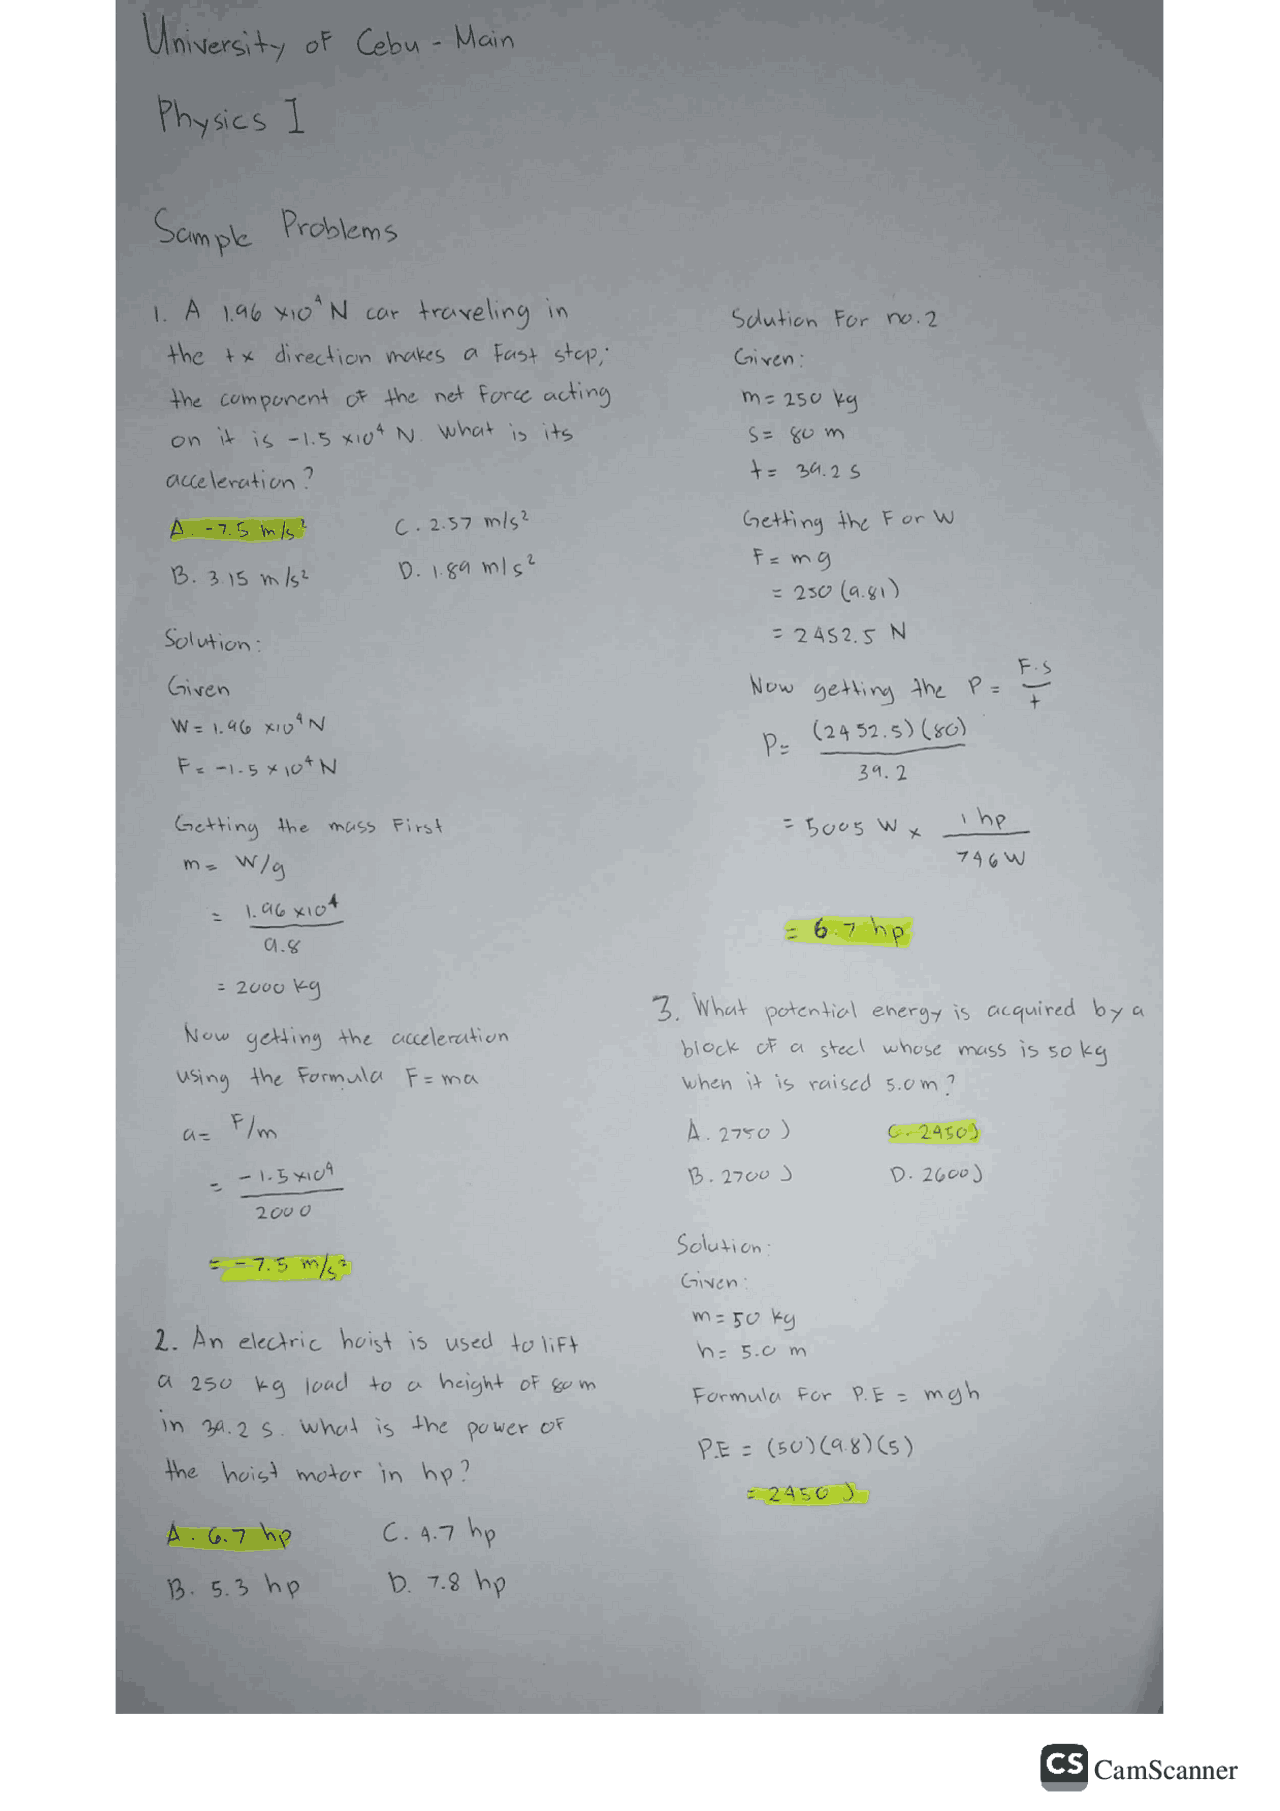 University of Cebu - Main
Physics I
Sample Problems
1. A 1.96 x10⁴ N car traveling in
the +x direction makes a fast stop;
the component of the net force acting
on it is -1.5 x10⁴ N. What is its
acceleration?
A. -7.5 m/s² C. 2.57 m/s²
B. 3.15 m/s² D. 1.89 m/s²
Solution:
Given
W = 1.96 x10⁴ N
F = -1.5 x 10⁴ N
Getting the mass first
m = W/g
= 1.96 x10⁴
9.8
= 2000 kg
Now getting the acceleration
using the formula F = ma
a = F/m
= -1.5 x10⁴
2000
= -7.5 m/s²
2. An electric hoist is used to lift
a 250 kg load to a height of 80 m
in 39.2 s. what is the power of
the hoist motor in hp?
A. 6.7 hp C. 4.7 hp
B. 5.3 hp D. 7.8 hp
Solution for no. 2
Given:
m = 250 kg
s = 80 m
t = 39.2 s
Getting the F or W
F = mg
= 250 (9.81)
= 2452.5 N
Now getting the P = F.s
t
P = (2452.5)(80)
39.2
= 5005 W x 1 hp
746 W
= 6.7 hp
3. What potential energy is acquired by a
block of a steel whose mass is 50 kg
when it is raised 5.0 m?
A. 2750 J C. 2450 J
B. 2700 J D. 2600 J
Solution:
Given:
m = 50 kg
h = 5.0 m
Formula for P.E = mgh
P.E = (50)(9.8)(5)
= 2450 J
CS CamScanner